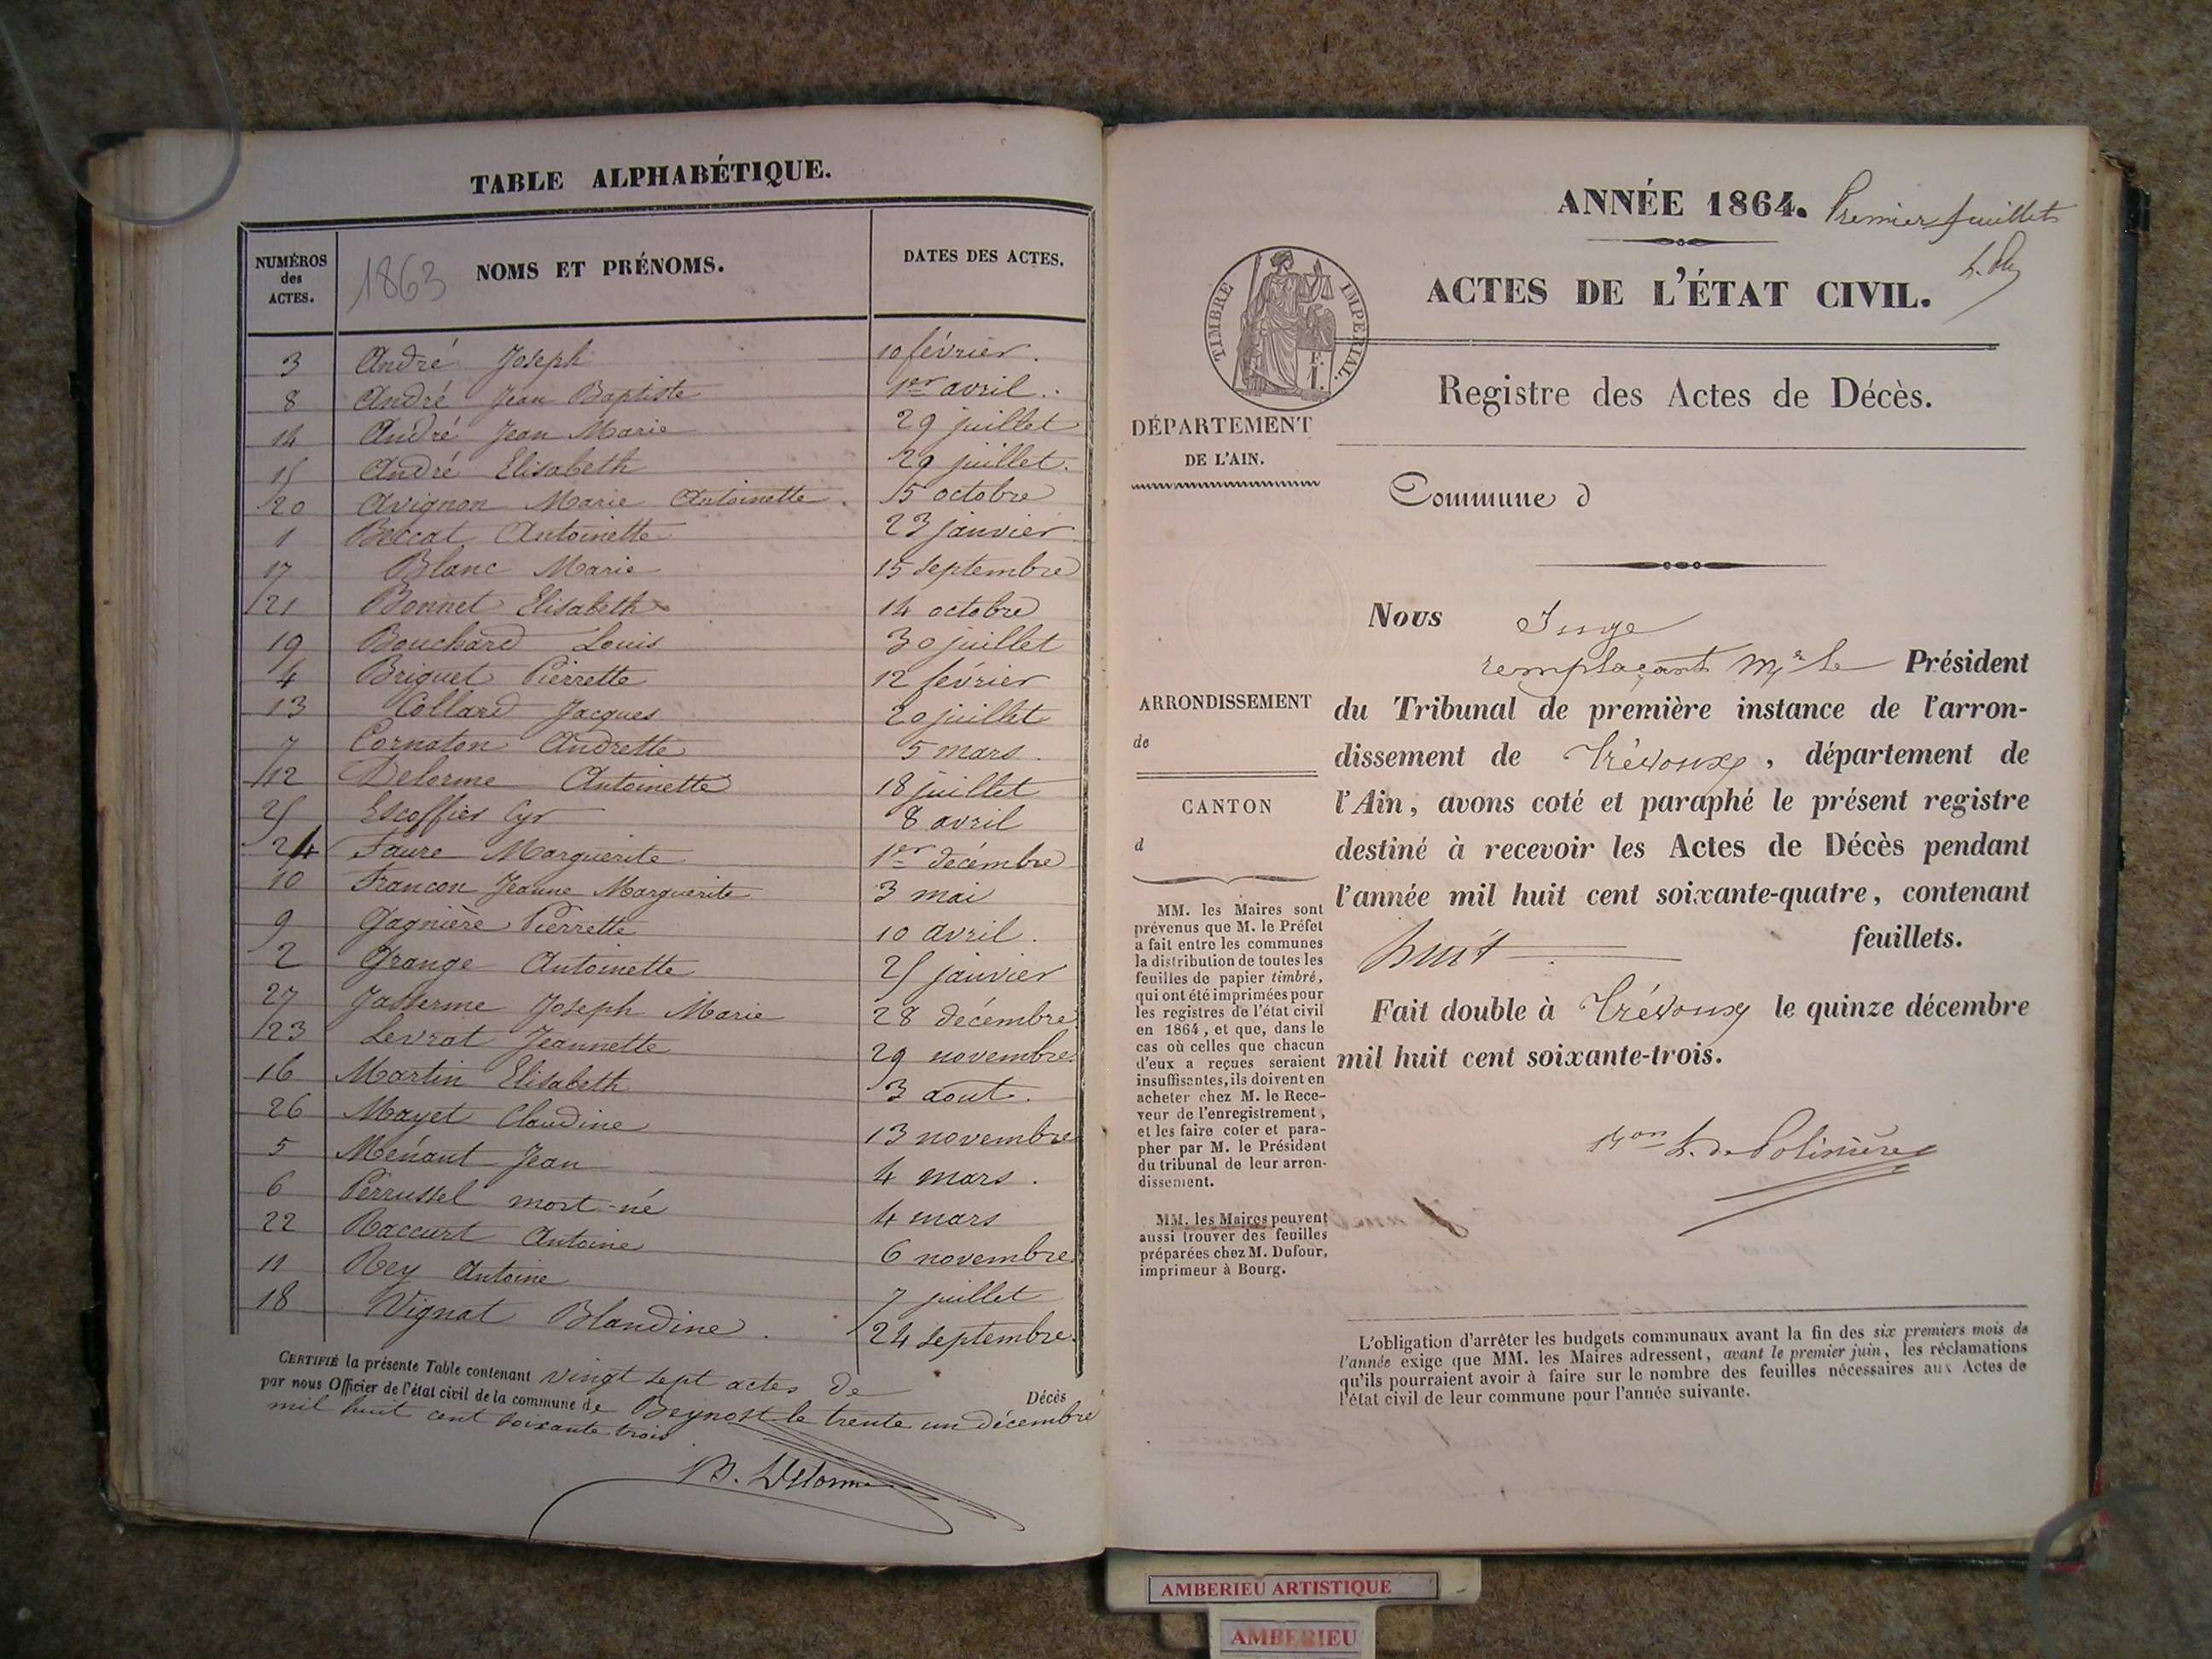 TABLE ALPHABÉTIQUE.
NUMÉROS des ACTES. 1863 NOMS ET PRÉNOMS. DATES DES ACTES.
3 André Joseph 10 février.
8 André Jean Baptiste 1er avril.
14 André Jean Marie 29 juillet
15 André Elisabeth 29 juillet.
20 Avignon Marie Antoinette. 15 octobre
1 Beccat Antoinette 23 janvier
17 Blanc Marie 15 septembre
21 Bonnet Elisabeth 14 octobre
19 Bouchard Louis 30 juillet
4 Briguet Pierrette 12 février
13 Collard Jacques 20 juillet
7 Cornaton Andrette 5 mars.
12 Delorme Antoinette 18 juillet
25 Escoffier Cyr 8 avril
24 Faure Marguerite 1er décembre
10 Francon Jeanne Marguerite 3 mai
9 Gagnière Pierrette 10 avril.
2 Grange Antoinette 25 janvier
27 Jasserme Joseph Marie 28 décembre
23 Levrat Jeannette 29 novembre.
16 Martin Elisabeth 3 aout.
26 Mayet Claudine 13 novembre
5 Ménant Jean 4 mars.
6 Perrussel mort-né 4 mars
22 Raccurt Antoine 6 novembre
11 Rey Antoine 7 juillet
18 Vignat Blandine. 24 septembre.
CERTIFIÉ la présente Table contenant vingt sept actes de Décès
par nous Officier de l'état civil de la commune de Beynost le trente un décembre
mil huit cent soixante trois
B. Delorme
ANNÉE 1864. Premier feuillet
ACTES DE L'ÉTAT CIVIL.
TIMBRE IMPERIAL.
Registre des Actes de Décès.
DÉPARTEMENT
DE L'AIN.
Commune d
Nous Juge
remplaçant Mr le Président
ARRONDISSEMENT
de
CANTON
d
du Tribunal de première instance de l'arron-
dissement de Trévoux, département de
l'Ain, avons coté et paraphé le présent registre
destiné à recevoir les Actes de Décès pendant
l'année mil huit cent soixante-quatre, contenant
huit feuillets.
Fait double à Trévoux le quinze décembre
mil huit cent soixante-trois.
Bon L. de Polinière
MM. les Maires sont
prévenus que M. le Préfet
a fait entre les communes
la distribution de toutes les
feuilles de papier timbré,
qui ont été imprimées pour
les registres de l'état civil
en 1864, et que, dans le
cas où celles que chacun
d'eux a reçues seraient
insuffisantes, ils doivent en
acheter chez M. le Rece-
veur de l'enregistrement,
et les faire coter et para-
pher par M. le Président
du tribunal de leur arron-
dissement.
MM. les Maires peuvent
aussi trouver des feuilles
préparées chez M. Dufour,
imprimeur à Bourg.
L'obligation d'arrêter les budgets communaux avant la fin des six premiers mois de
l'année exige que MM. les Maires adressent, avant le premier juin, les réclamations
qu'ils pourraient avoir à faire sur le nombre des feuilles nécessaires aux Actes de
l'état civil de leur commune pour l'année suivante.
AMBERIEU ARTISTIQUE
AMBERIEU